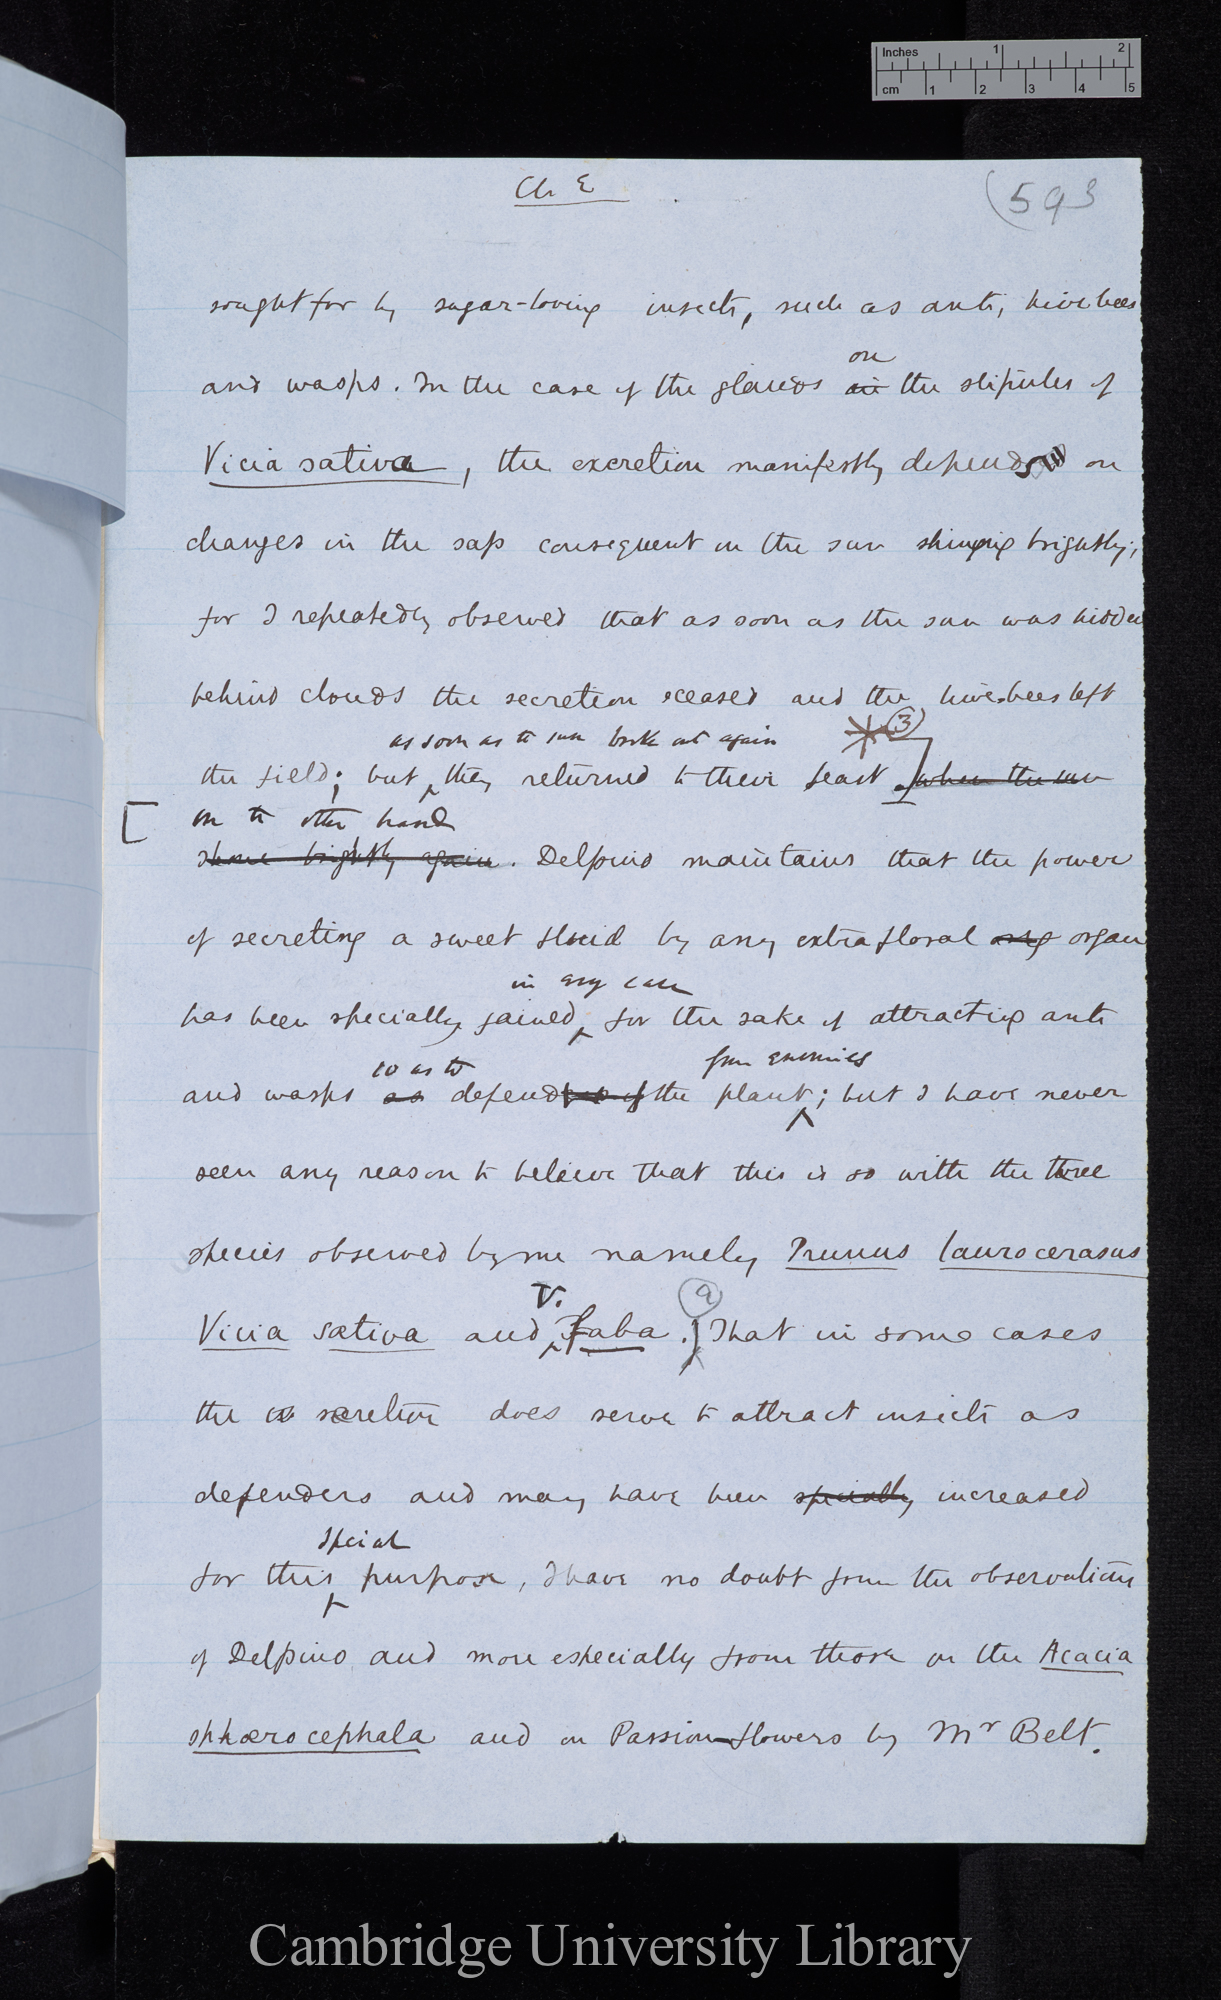 Inches 1 2
cm 1 2 3 4 5
Ch E
(593
sought for by sugar-loving insects, such as ants, hive bees
on
and wasps. In the case of the glands in the stipules of
Vicia sativa, the excretion manifestly depends on
changes in the sap consequent on the sun shining brightly;
for I repeatedly observed that as soon as the sun was hidden
behind clouds the secretion ceased and the hive-bees left
as soon as the sun broke out again
3
the field; but they returned to their feast when the sun
[ on the other hand
shone brightly again. Delpino maintains that the power
of secreting a sweet fluid by any extrafloral organ
in any case
has been specially gained, for the sake of attracting ants
so as to from enemies
and wasps as defend the plant; but I have never
seen any reason to believe that this is so with the three
species observed by me namely Prunus laurocerasus
V. a
Vicia sativa and Faba. That in some cases
the secretion does serve to attract insects as
defenders and may have been specially increased
special
for this purpose, I have no doubt from the observations
of Delpino and more especially from those on the Acacia
sphærocephala and on Passion-flowers by Mr Belt.
Cambridge University Library